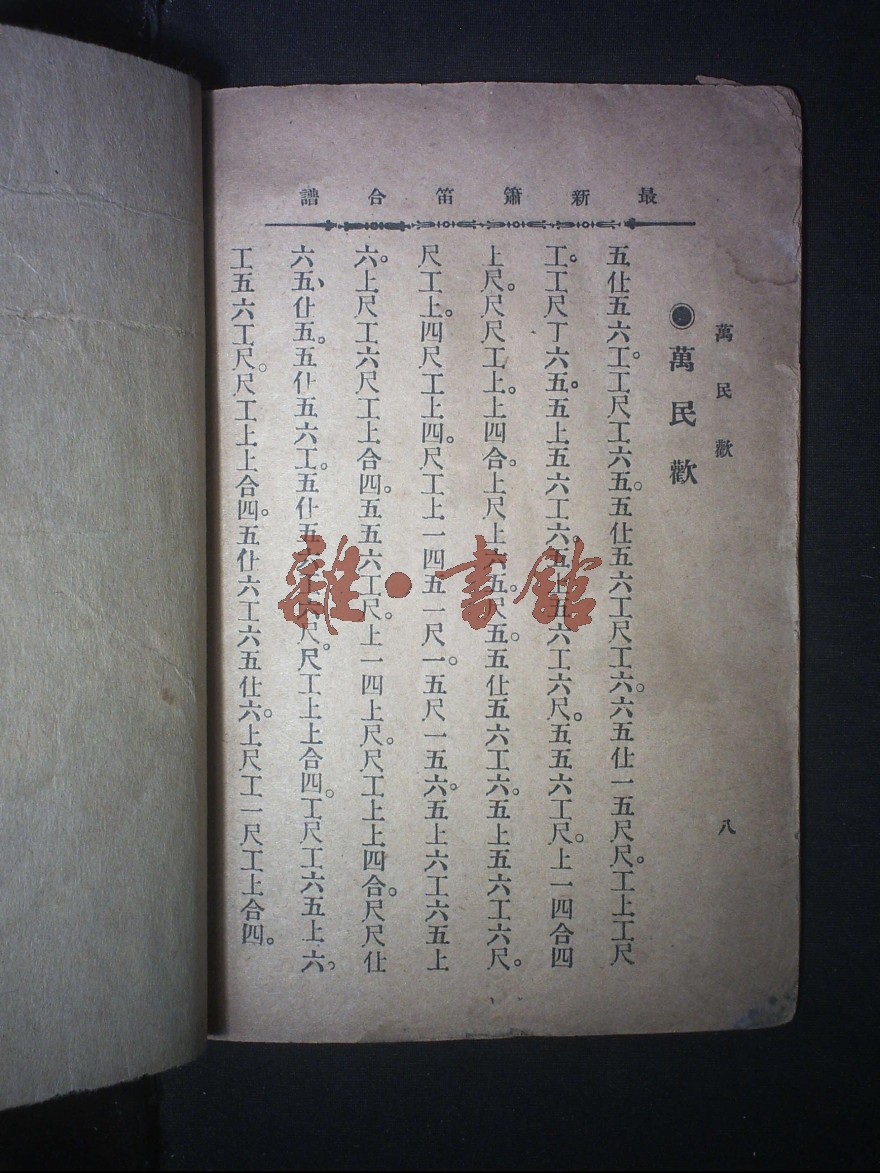 最新簫笛合譜
萬民歡
八
●萬民歡
五仕五六工。工尺工六五。五仕五六工尺工六。六五仕一五尺尺。工上工尺
工。工尺丁六五。五上五六工六。五五六工六尺。五五六工尺。上一四合四
上尺。尺尺工上。上四合。上尺上六五。尺五。五仕五六工六。五上五六工六尺。
尺工上。四尺工上四。尺工上一四五一尺一。五尺一五六。五上六工六五上
六。上尺工六尺工上合四。五五六工尺。上一四上尺。尺工上上四合。尺尺仕
六五、仕五。五仕五六工。五仕五六工六尺。尺工上上合四。工尺工六五上六。
工五六工尺。尺工上上合四。五仕六工六五仕六。上尺工一尺工上合四。
雜·書館